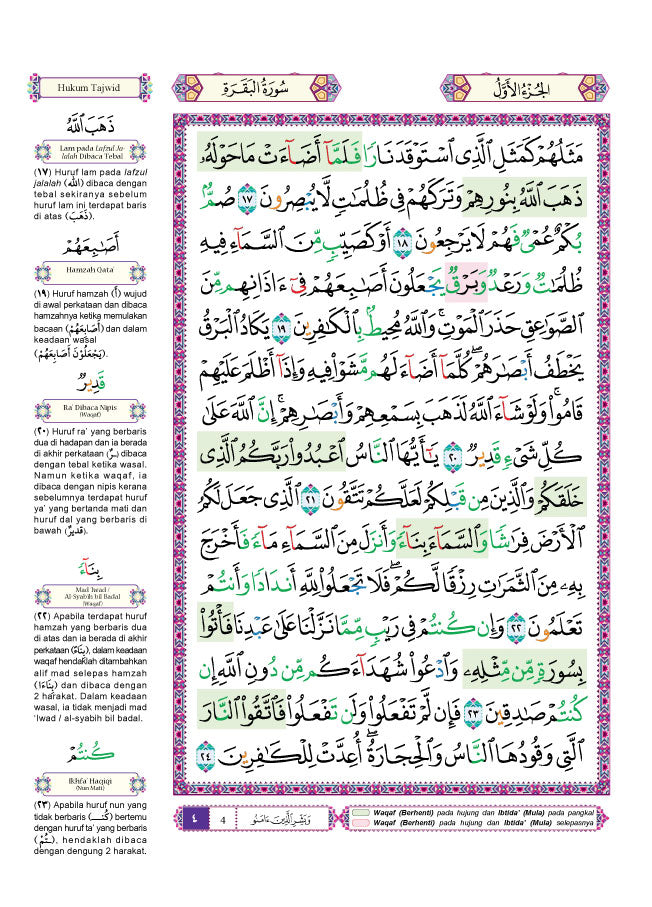 Hukum Tajwid
سُورَةُ الْبَقَرَةِ
الجُزْءُ الأَوَّلُ
ذَهَبَ اللَّهُ
Lam pada Lafzul Ja-
lalah Dibaca Tebal
(١٧) Huruf lam pada lafzul
jalalah (اللَّه) dibaca dengan
tebal sekiranya sebelum
huruf lam ini terdapat baris
di atas (ذَهَبَ).
أَصَابِعَهُمْ
Hamzah Qata'
(١٩) Huruf hamzah (أ) wujud
di awal perkataan dan dibaca
hamzahnya ketika memulakan
bacaan (أَصَابِعَهُمْ) dan dalam
keadaan wasal
(يَجْعَلُوْنَ أَصَابِعَهُمْ).
قَدِيرٌ
Ra' Dibaca Nipis
(Waqaf)
(٢٠) Huruf ra' yang berbaris
dua di hadapan dan ia berada
di akhir perkataan (ـرٌ) dibaca
dengan tebal ketika wasal.
Namun ketika waqaf, ia
dibaca dengan nipis kerana
sebelumnya terdapat huruf
ya' yang bertanda mati dan
huruf dal yang berbaris di
bawah (قَدِيرٌ).
بِنَآءً
Mad 'Iwad /
Al-Syabih bil Badal
(Waqaf)
(٢٢) Apabila terdapat huruf
hamzah yang berbaris dua
di atas dan ia berada di akhir
perkataan (بِنَآءً), dalam keadaan
waqaf hendaklah ditambahkan
alif mad selepas hamzah
(بِنَاءَا) dan dibaca dengan
2 harakat. Dalam keadaan
wasal, ia tidak menjadi mad
'Iwad / al-syabih bil badal.
كُنتُمْ
Ikhfa' Haqiqi
(Nun Mati)
(٢٣) Apabila huruf nun yang
tidak berbaris (كُنـ) bertemu
dengan huruf ta' yang berbaris
(ـتُمْ), hendaklah dibaca
dengan dengung 2 harakat.
مَثَلُهُمْ كَمَثَلِ ٱلَّذِى ٱسْتَوْقَدَ نَارًا فَلَمَّآ أَضَآءَتْ مَا حَوْلَهُۥ
ذَهَبَ ٱللَّهُ بِنُورِهِمْ وَتَرَكَهُمْ فِى ظُلُمَٰتٍ لَّا يُبْصِرُونَ ١٧ صُمٌّۢ
بُكْمٌ عُمْىٌ فَهُمْ لَا يَرْجِعُونَ ١٨ أَوْ كَصَيِّبٍ مِّنَ ٱلسَّمَآءِ فِيهِ
ظُلُمَٰتٌ وَرَعْدٌ وَبَرْقٌ يَجْعَلُونَ أَصَٰبِعَهُمْ فِىٓ ءَاذَانِهِم مِّنَ
ٱلصَّوَٰعِقِ حَذَرَ ٱلْمَوْتِ ۚ وَٱللَّهُ مُحِيطٌۢ بِٱلْكَٰفِرِينَ ١٩ يَكَادُ ٱلْبَرْقُ
يَخْطَفُ أَبْصَٰرَهُمْ ۖ كُلَّمَآ أَضَآءَ لَهُم مَّشَوْا۟ فِيهِ وَإِذَآ أَظْلَمَ عَلَيْهِمْ
قَامُوا۟ ۚ وَلَوْ شَآءَ ٱللَّهُ لَذَهَبَ بِسَمْعِهِمْ وَأَبْصَٰرِهِمْ ۚ إِنَّ ٱللَّهَ عَلَىٰ
كُلِّ شَىْءٍ قَدِيرٌ ٢٠ يَٰٓأَيُّهَا ٱلنَّاسُ ٱعْبُدُوا۟ رَبَّكُمُ ٱلَّذِى
خَلَقَكُمْ وَٱلَّذِينَ مِن قَبْلِكُمْ لَعَلَّكُمْ تَتَّقُونَ ٢١ ٱلَّذِى جَعَلَ لَكُمُ
ٱلْأَرْضَ فِرَٰشًا وَٱلسَّمَآءَ بِنَآءً وَأَنزَلَ مِنَ ٱلسَّمَآءِ مَآءً فَأَخْرَجَ
بِهِۦ مِنَ ٱلثَّمَرَٰتِ رِزْقًا لَّكُمْ ۖ فَلَا تَجْعَلُوا۟ لِلَّهِ أَندَادًا وَأَنتُمْ
تَعْلَمُونَ ٢٢ وَإِن كُنتُمْ فِى رَيْبٍ مِّمَّا نَزَّلْنَا عَلَىٰ عَبْدِنَا فَأْتُوا۟
بِسُورَةٍ مِّن مِّثْلِهِۦ وَٱدْعُوا۟ شُهَدَآءَكُم مِّن دُونِ ٱللَّهِ إِن
كُنتُمْ صَٰدِقِينَ ٢٣ فَإِن لَّمْ تَفْعَلُوا۟ وَلَن تَفْعَلُوا۟ فَٱتَّقُوا۟ ٱلنَّارَ
ٱلَّتِى وَقُودُهَا ٱلنَّاسُ وَٱلْحِجَارَةُ ۖ أُعِدَّتْ لِلْكَٰفِرِينَ ٢٤
٤ 4 وَبَشِّرِ الَّذِينَ ءَامَنُوا
Waqaf (Berhenti) pada hujung dan Ibtida' (Mula) pada pangkal
Waqaf (Berhenti) pada hujung dan Ibtida' (Mula) selepasnya